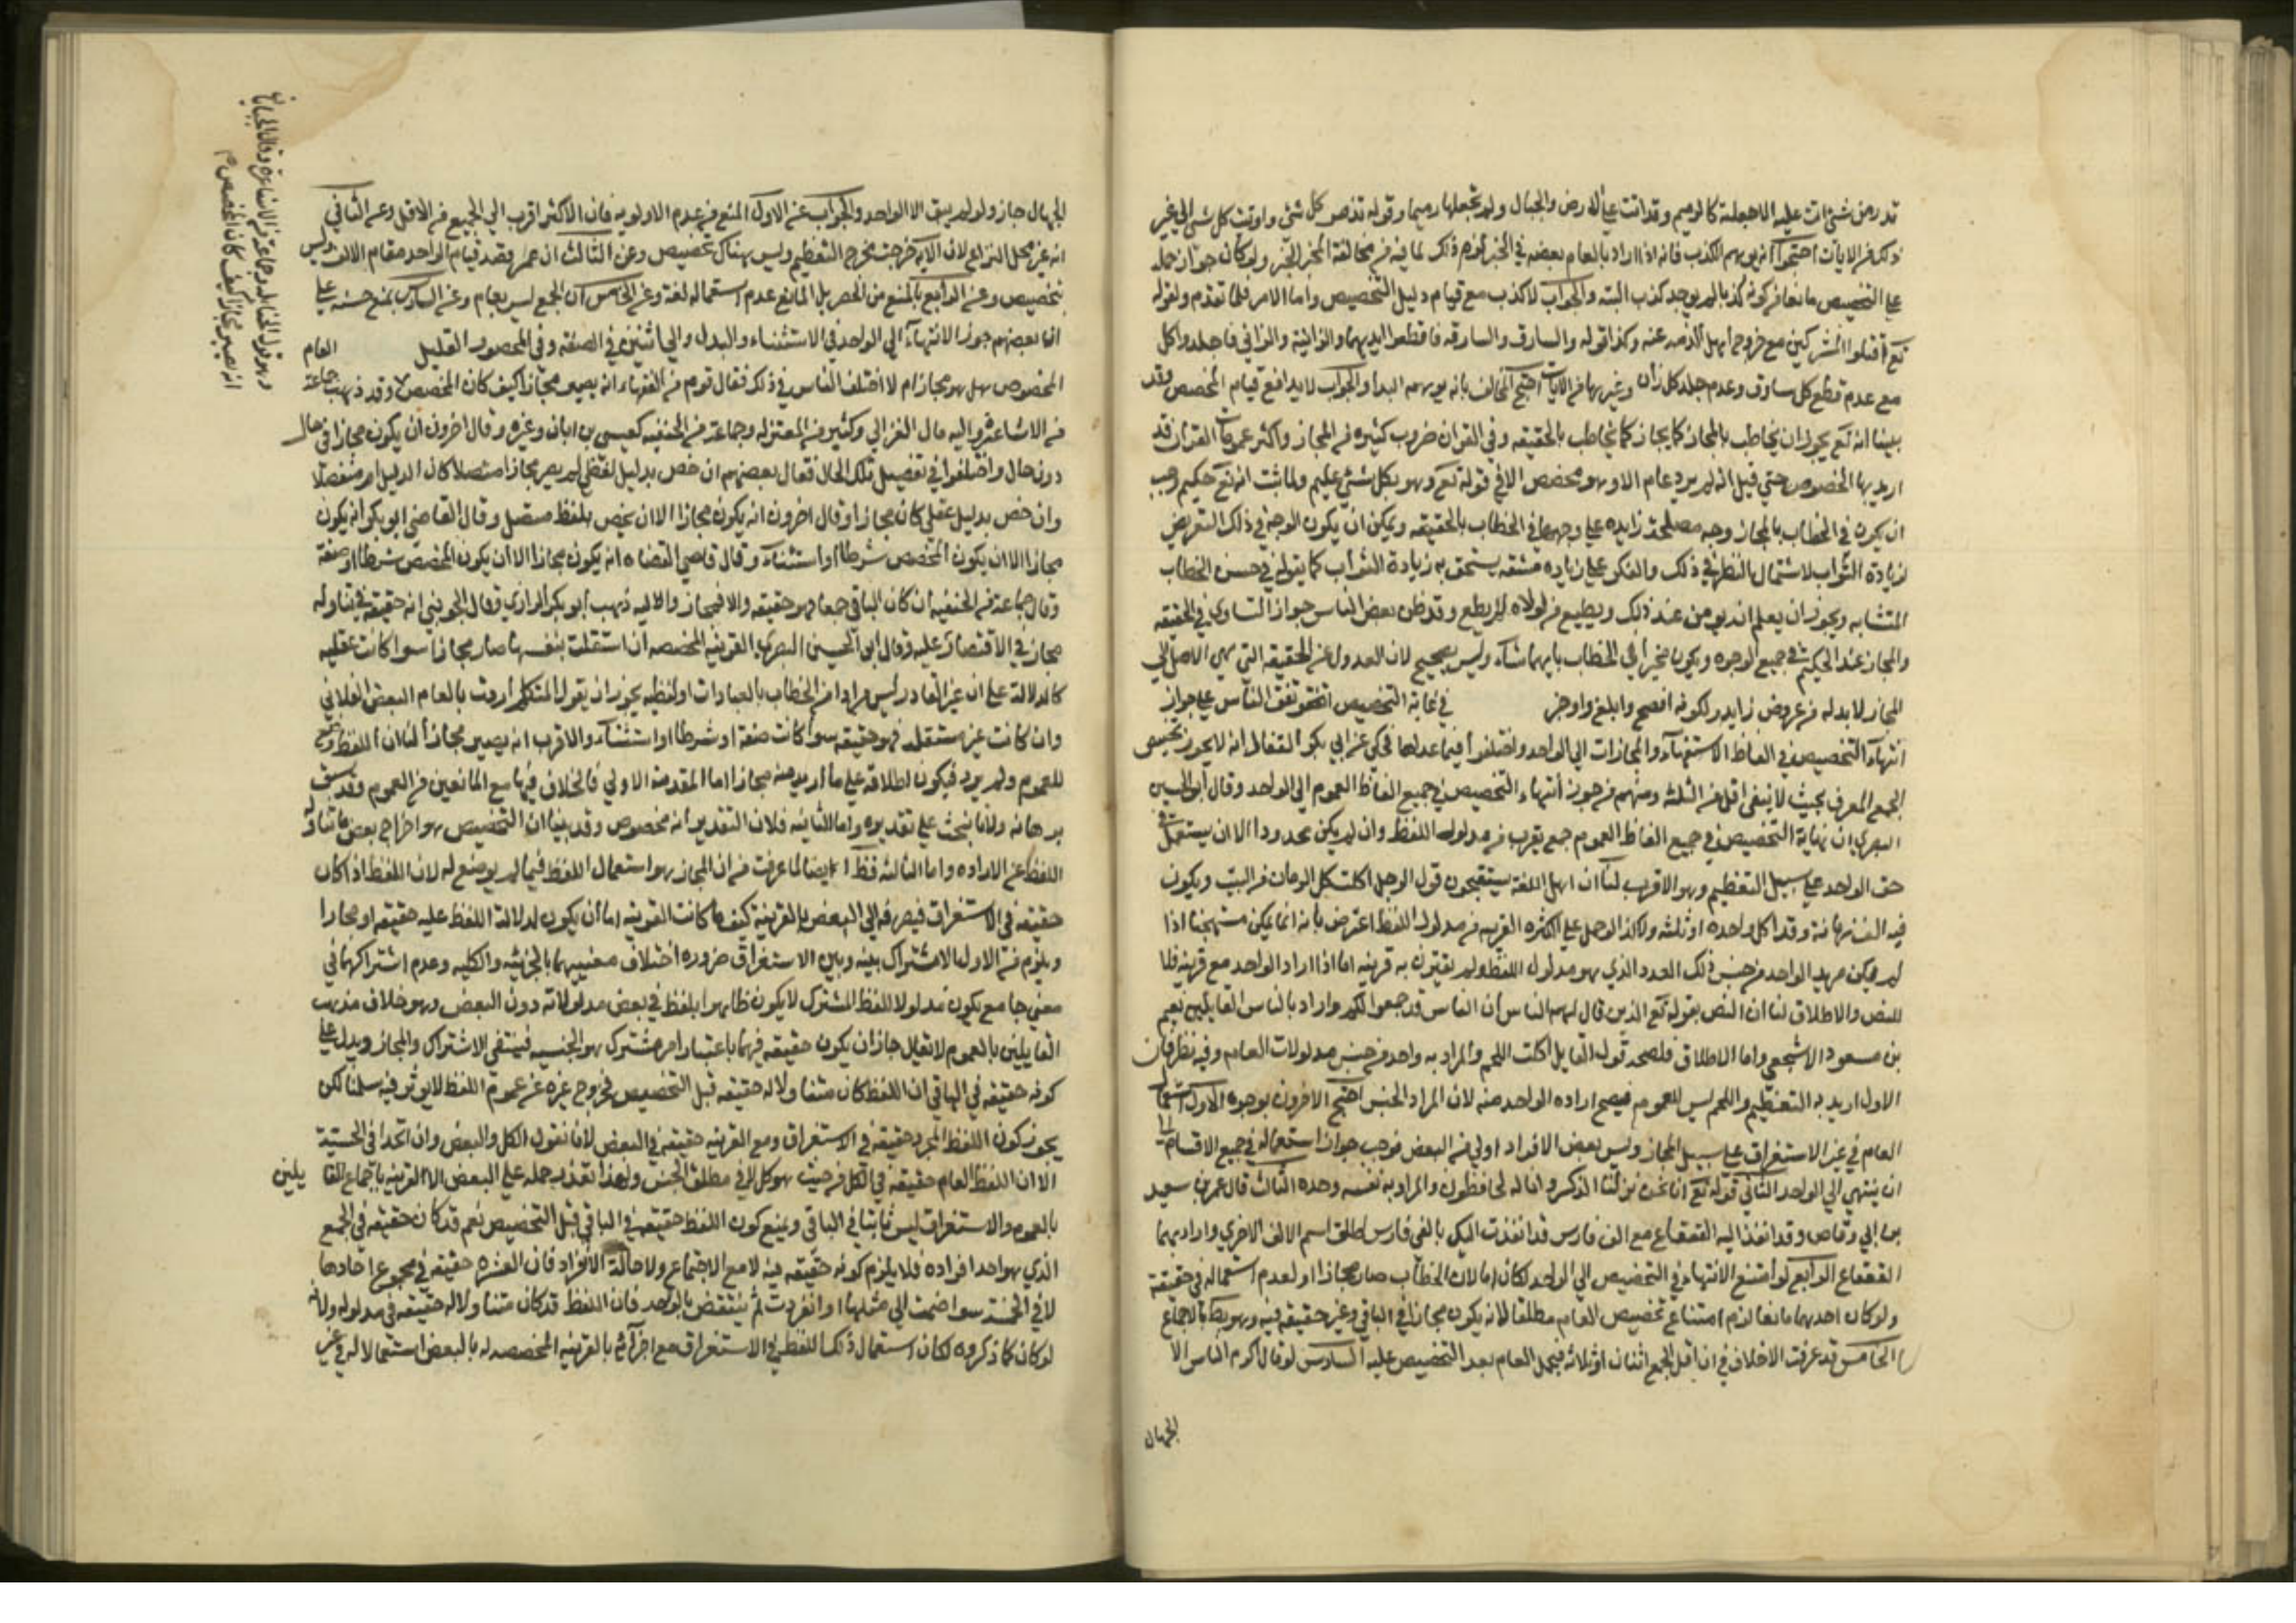 تذر من شئ اتت عليه الا جعلته كالرميم وقد اتت على الارض والجبال ولم تجعلها رميما وقوله تدمر كل شئ واوتيت كل شئ الى غير
ذلك من الايات احتجوا انه يوهم الكذب فانه اذا اراد بالعام بعضه في الخبر لزم ذلك لما فيه من مخالفة المخبر الخبر ولو كان جواز حمله
على التخصيص مانعا من كونه كذبا لم يوجد كذب البته والجواب لا كذب مع قيام دليل التخصيص واما الامر فلما تقدم ولقوله
تع اقتلوا المشركين مع خروج اهل الذمه عنه وكذا قوله والسارق والسارقه فاقطعوا ايديهما والزانية والزاني فاجلدوا كل
مع عدم قطع كل سارق وعدم جلد كل زان وغيرها من الايات احتج المخالف بانه يوهم البدا والجواب لا بد افع قيام المخصص وقد
بينا انه تع يجوز ان يخاطب بالمجاز كما يخاطب بالحقيقه وفي القران ضروب كثيره من المجاز واكثر عمومات القران قد
اريد بها الخصوص حتي قيل انه لم يرد عام الا وهو مخصص الا في قوله تع وهو بكل شئ عليم ولما ثبت انه تع حكيم وجب
ان يكون في الخطاب بالمجاز وجه مصلحة زايده على وجهها في الخطاب بالحقيقه ويمكن ان يكون الوجه في ذلك التعريض
لزيادة الثواب لاشتمال النظر في ذلك والفكر على زياده مشقه يستحق به زيادة الثواب كما يقوله في حسن الخطاب
المتشابه ويجوز ان يعلم انه يومن عند ذلك ويطيع من لولاه لم يطع وقد ظن بعض الناس جواز التساوي في الحقيقه
والمجاز عند الحكيم في جميع الوجوه ويكون مخيرا في الخطاب بايهما شاء وليس بصحيح لان العدول عن الحقيقه التي هي الاصل الي
المجاز لا بد له من غرض زايد ككونه افصح وابلغ واوجز في غاية التخصيص اتفق الناس على جواز
انتهاء التخصيص في الفاظ الاستفهام والمجازات الي الواحد واختلفوا فيما عداها فحكي عن ابي بكر القفال انه لا يجوز تخصيص
الجمع المعرف بحيث لا يبقى اقل من الثلثه ومنهم من جوز انتهاء التخصيص في جميع الفاظ العموم الى الواحد وقال ابو الحسين
البصري ان نهاية التخصيص في جميع الفاظ العموم جمع يقرب من مدلول اللفظ وان لم يكن محدودا الا ان يستعمل في
حق الواحد على سبيل التعظيم وهو الاقرب لنا ان اهل اللغة يستقبحون قول الرجل اكلت كل الرمان في البيت ويكون
فيه الف رمانة وقد اكل واحده او ثلثه ولا كذا لو حمل علي الكثره القريبه من مدلول اللفظ اعترض بانه انما يكن مستهجنا اذا
لم يكن مريد الواحد من جنس ذلك العدد الذي هو مدلول اللفظ ولم يقترن به قرينه اما اذا اراد الواحد مع قرينه فلا
للنص والاطلاق لنا ان النص بقوله تع الذين قال لهم الناس ان الناس قد جمعوا لكم واراد بالناس القايلين نعيم
بن مسعود الاشجعي واما الاطلاق فلصحه قول القايل اكلت اللحم والمراد به واحد من جنس مدلولات العام وفيه نظر فان
الاول اريد به التعظيم واللحم ليس للعموم فيصح اراده الواحد منه لان المراد الجنس احتج الاخرون بوجوه الاول استعمال
العام في غير الاستغراق على سبيل المجاز وليس بعض الافراد اولي من البعض فوجب جواز استعماله في جميع الاقسام الى
ان ينتهي الي الواحد الثاني قوله تع انا نحن نزلنا الذكر وانا له لحافظون والمراد به نفسه وحده الثالث قال عمر بن سعيد
بن ابي وقاص وقد انفذ اليه القعقاع مع الف فارس قد انفذت اليك بالفي فارس اطلق اسم الالف الاخري واراد بهما
القعقاع الرابع لو امتنع الانتهاء في التخصيص الي الواحد لكان اما لان الخطاب صار مجازا او لعدم استعماله في حقيقة
ولو كان احدهما مانعا لزم امتناع تخصيص العام مطلقا لانه يكون مجازا في الباقي وغير حقيقه فيه وهو بط بالاجماع
الخامس قد عرفت الاختلاف في ان اقل الجمع اثنان او ثلاثه فيحمل العام بعد التخصيص عليه السادس لو قال اكرم الناس الا
الجهال
الجهال جاز ولو لم يبق الا الواحد والجواب عن الاول المنع من عدم الاولويه فان الاكثر اقرب الي الجميع من الاقل وعن الثاني
انه غير محل النزاع لان الايه خرجت مخرج التعظيم وليس هناك تخصيص وعن الثالث ان عمر قصد قيام الواحد مقام الالف وليس
بتخصيص وعن الرابع بالمنع من الحصر بل المانع عدم استعماله لغة وعن الخامس ان الجمع ليس بعام وعن السادس بمنع حسنه على
ان بعضهم جوز الانتهاء الي الواحد في الاستثناء والبدل والي اثنين في الصفه وفي المحصور القليل العام
المخصوص هل هو مجاز ام لا اختلف الناس في ذلك فقال قوم من الفقهاء انه يصير مجازا كيف كان المخصص وقد ذهب جماعة
من الاشاعره واليه مال الغزالي وكثير من المعتزله وجماعة من الحنفيه كعيسى بن ابان وغيره وقال اخرون ان يكون مجازا في حال
دون حال واختلفوا في تفصيل تلك الحال فقال بعضهم ان خص بدليل لفظي لم يصر مجازا متصلا كان الدليل او منفصلا
وان خص بدليل عقلي كان مجازا وقال اخرون انه يكون مجازا الا ان يخص بلفظ متصل وقال القاضي ابو بكر انه يكون
مجازا الا ان يكون المخصص شرطا او استثناء وقال قاضي القضاه انه يكون مجازا الا ان يكون المخصص شرطا او صفة
وقال جماعة من الحنفيه ان كان الباقي جمعا فهو حقيقه والا فمجاز واليه ذهب ابو بكر الرازي وقال الجويني انه حقيقه في تناوله
مجاز في الاقتصار عليه وقال ابو الحسين البصري القرينه المخصصه ان استقلت بنفسها صار مجازا سوا كانت عقليه
كالدلالة على ان غير القادر ليس مرادا من الخطاب بالعبادات او لفظيه يجوز ان يقول المتكلم اردت بالعام البعض الفلاني
وان كانت غير مستقله فهو حقيقه سوا كانت صفة او شرطا او استثناء والاقرب انه يصير مجازا لنا ان اللفظ وضع
للعموم ولم يرد فيكون اطلاقه على ما اريد منه مجازا اما المقدمة الاولي فالخلاف فيها مع المانعين من العموم وقد سبق
برهانه ولانا نبحث علي تقديره واما الثانيه فلان التقدير انه مخصوص وقد بينا ان التخصيص هو اخراج بعض ما تناوله
اللفظ عن الاراده واما الثالثه فظ ايضا لما عرفت من ان المجاز هو استعمال اللفظ فيما لم يوضع له لان اللفظ اذا كان
حقيقه في الاستغراق فيصرفه الي البعض بالقرينة كيف ما كانت القرينه اما ان يكون لدلالة اللفظ عليه حقيقه او مجازا
ويلزم من الاول الاشتراك بينه وبين الاستغراق ضروره اختلاف معنييهما بالجزئيه والكليه وعدم اشتراكهما في
معني جامع يكون مدلولا للفظ المشترك لا يكون ظاهرا بلفظ في بعض مدلولاته دون البعض وهو خلاف مذهب
القايلين بالعموم لا يقال جاز ان يكون حقيقه فيهما باعتبار امر مشترك هو الجنسيه فينتفي الاشتراك والمجاز ويدل على
كونه حقيقه في الباقي ان اللفظ كان متناولا له حقيقه قبل التخصيص فخروج غيره عن عموم اللفظ لا يوثر فيه سلمنا لكن
يجوز كون اللفظ المجرد حقيقه في الاستغراق ومع القرينه حقيقه في البعض لانا نقول الكل والبعض وان اتحدا في الجنسية
الا ان اللفظ العام حقيقه في الكل من حيث هو كل لا في مطلق الجنس ولهذا تعذر حمله علي البعض الا القرينه باجماع القا يلين
بالعموم والاستغراق ليس ثابتا في الباقي ونمنع كون اللفظ حقيقه في الباقي قبل التخصيص نعم قد كان حقيقه في الجمع
الذي هو احد افراده فلا يلزم كونه حقيقه فيه لا مع الاجتماع ولا حالة الانفراد فان العشره حقيقه في مجموع احادها
لا في الخمسة سوا ضمت الي مثلها او انفردت ثم ينتقض بالواحد فان اللفظ قد كان متناولا له حقيقه في مدلوله ولانه
لو كان كما ذكروه لكان استعمال ذلك اللفظ في الاستغراق مع اقترانه بالقرينه المخصصه له بالبعض استعمالا له في غير
وهو قول الحنابله وجماعة من الاشاعرة وقال الجبائي
انه يصير مجازا كيف كان المخصص م